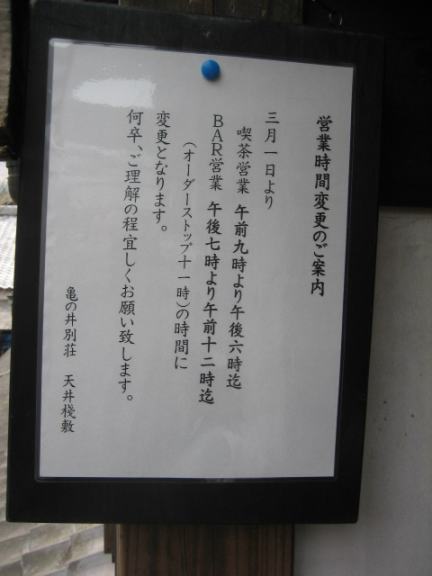 営業時間変更のご案内
三月一日より
喫茶営業 午前九時より午後六時迄
BAR営業 午後七時より午前十二時迄
(オーダーストップ十一時)の時間に
変更となります。
何卒、ご理解の程宜しくお願い致します。
亀の井別荘 天井棧敷